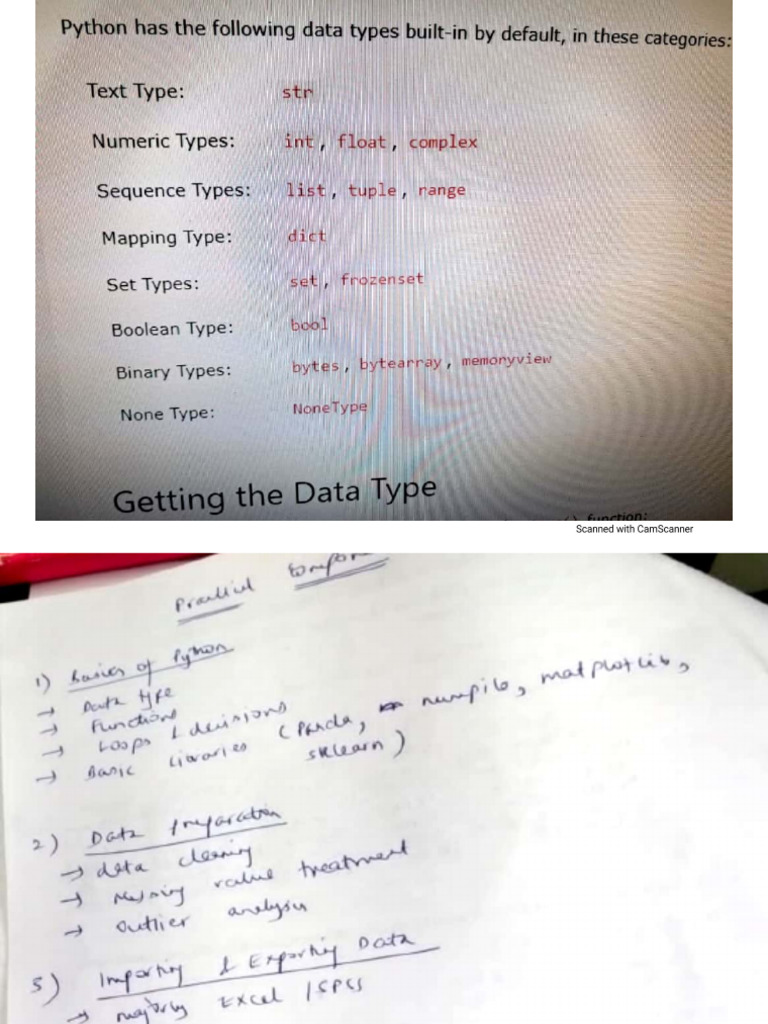 Python has the following data types built-in by default, in these categories:
Text Type: str
Numeric Types: int, float, complex
Sequence Types: list, tuple, range
Mapping Type: dict
Set Types: set, frozenset
Boolean Type: bool
Binary Types: bytes, bytearray, memoryview
None Type: NoneType
Getting the Data Type
function:
Scanned with CamScanner
Practical
1) Basics of Python
→ Data type
→ Functions
→ Loops & decisions
→ Basic Libraries (Panda, numpib, matplotlib,
sklearn)
2) Data Preparation
→ data cleaning
→ Missing value treatment
→ Outlier analysis
3) Importing & Exporting Data
→ majorly Excel / SPSS